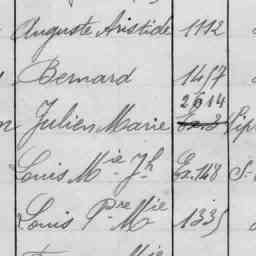 Auguste Aristide 1112
Bernard 1417
2614
Julien Marie
Louis Mie Jh Ex.148 S.
Louis Pre Mie 1335